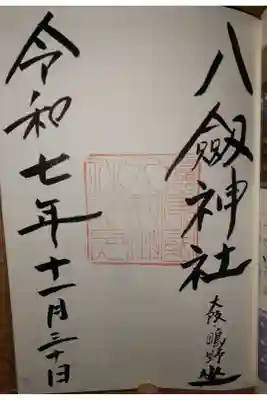 八劔神社
大阪鴫野坐
令和七年十一月三十日